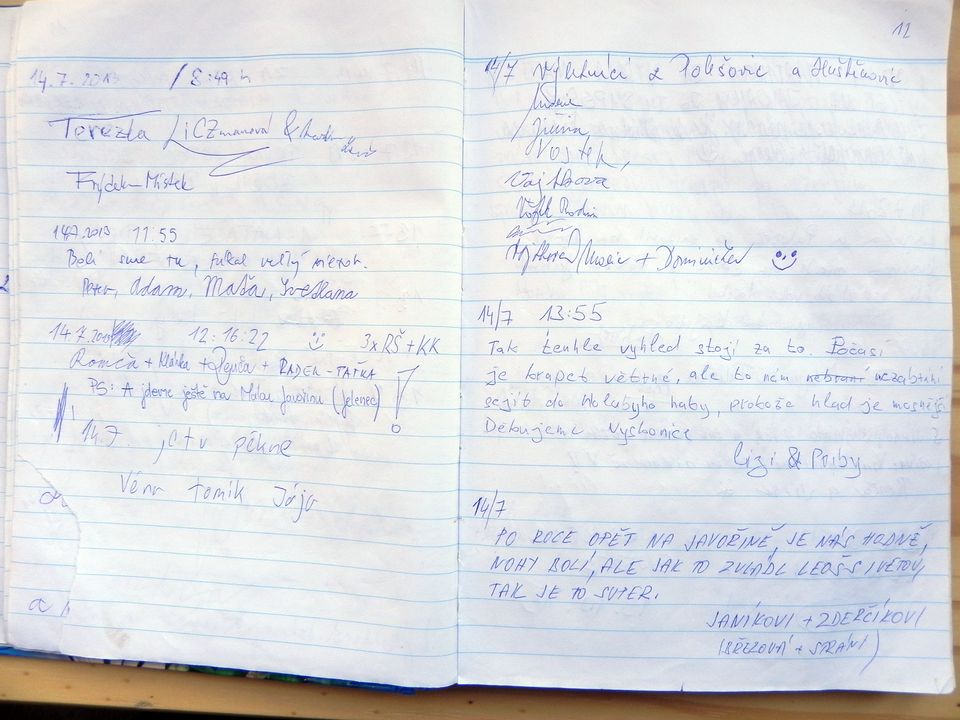 14.7.2013 / 8:49 h
Terezla LiCZmanová &
Frýdek-Místek
14.7.2013 11:55
Boli sme tu, fukal veľký vietor.
Peter, Adam, Maťa, Svetlana
14.7.2013 12:16:22 3xRŠ+KK
Romča + Klárka + + RADEK-TAŤKA
PS: A jdeme ještě na Malou Javořinu (jelenec)!
14.7. je tu pěkne
Věra tomik Jája
12
14/7 Výletníci z Polešovic a Huštěnovic
Jiřina
Vojtek,
Vojtkova
+ Dominiček
14/7 13:55
Tak tenhle vyhled stojí za to. Počasí
je krapet větrné, ale to nám nezabrání
sejít do Holubyho haty, protože hlad je mocnější
Děkujeme
Lizi & Priby
14/7
PO ROCE OPĚT NA JAVOŘINĚ, JE NÁS HODNĚ,
NOHY BOLÍ, ALE JAK TO ZVLÁDL LEOŠ S IVETOU,
TAK JE TO SUPER.
JANÍKOVI + ZDERČÍKOVI
(BŘEZOVÁ + STRÁNÍ)